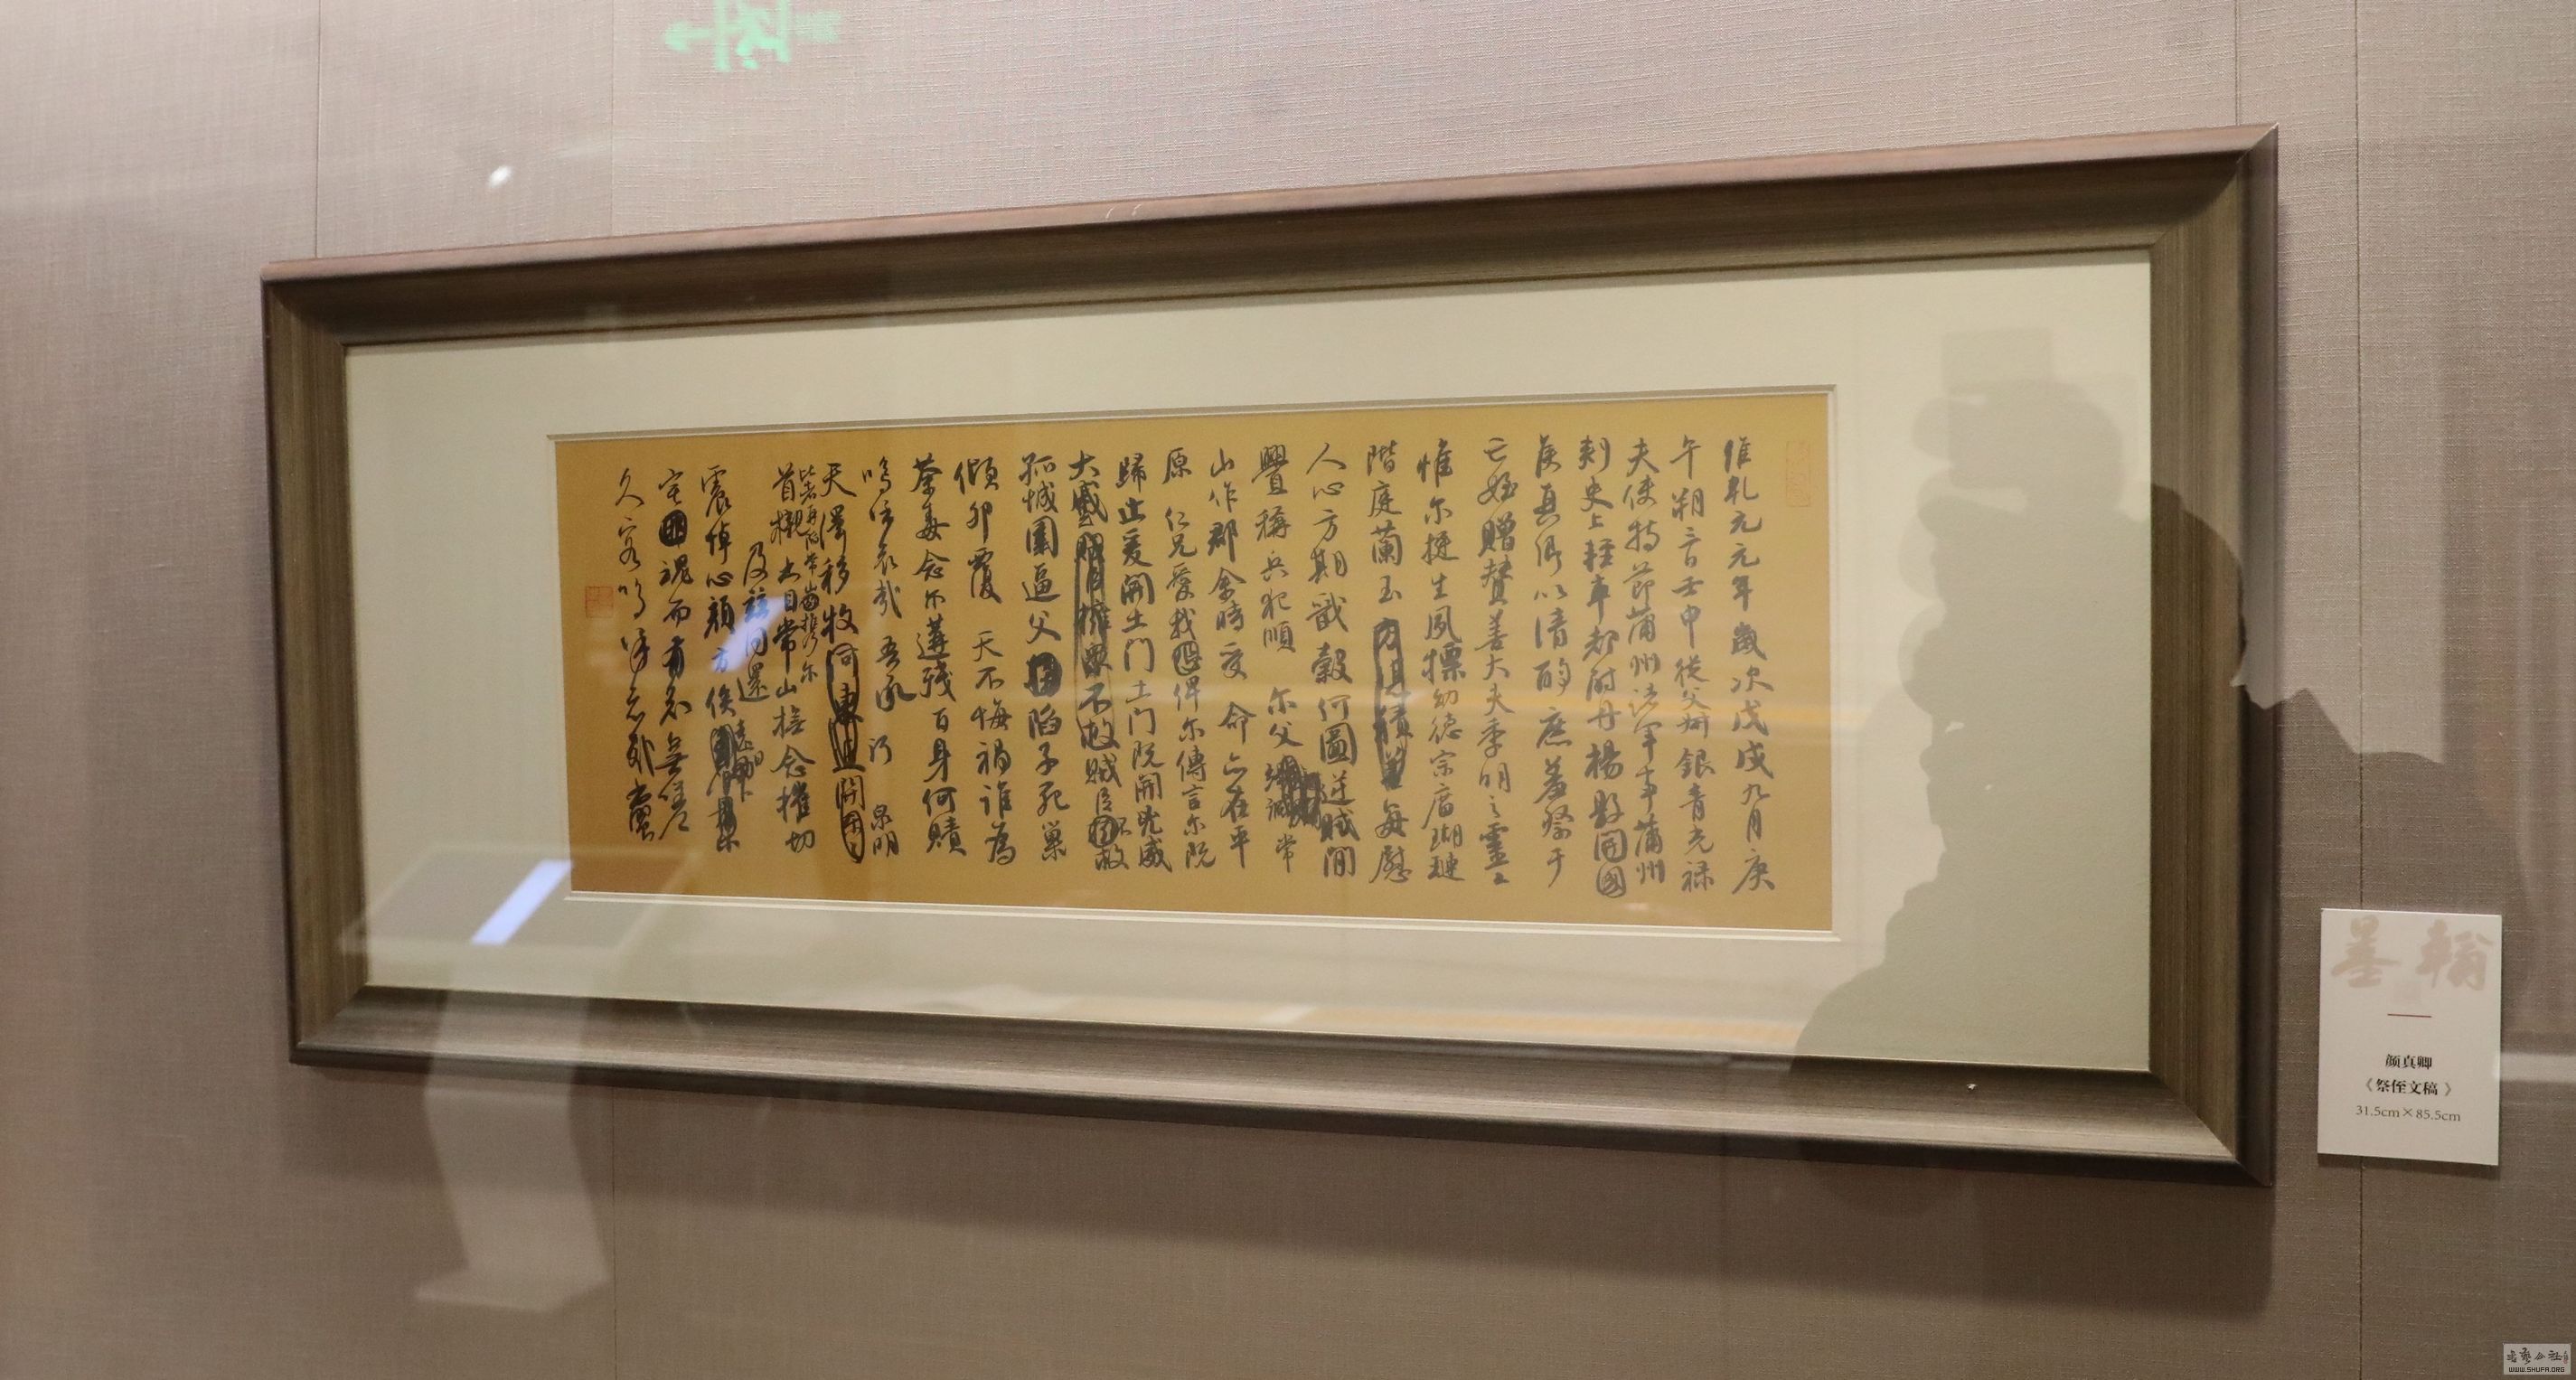 維乾元元年歲次戊戌九月庚
午朔三日壬申從父銀青光禄
夫使持節蒲州諸軍事蒲州
刺史上輕車都尉丹楊縣開國
侯真卿以清酌庶羞祭于
亡姪贈贊善大夫季明之靈
惟爾挺生夙標幼德宗廟瑚璉
階庭蘭玉方憑積善每慰
人心方期戩穀何圖逆賊間
釁稱兵犯順 尔父竭誠常
山作郡余時受 命亦在平
原 仁兄愛我恐俾尔傳言尔既
歸止爰開土門土門既開兇威
大蹙賊臣擁衆不救賊臣不救
孤城圍逼父陷子死巢
傾卵覆 天不悔禍誰為
荼毒念尔遘殘百身何贖
嗚呼哀哉 吾承 泉明
天澤移牧河東近 開
首櫬 常山攜尔
首櫬亦自常山撫念摧切
及茲同還
震悼心顏方俟遠日
宅魂而有知無嗟
久客嗚呼哀哉尚饗
翰墨
颜真卿
《祭侄文稿》
31.5cm×85.5cm
書藝公社
WWW.SHUFA.ORG